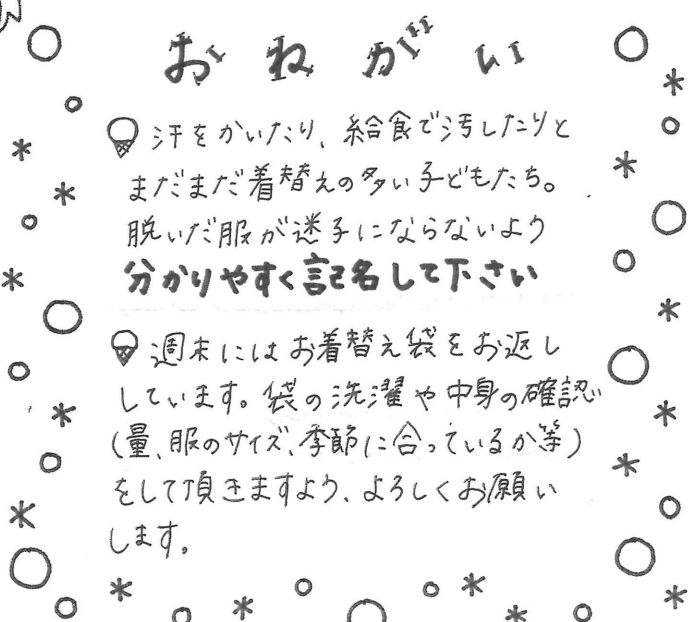 おねがい
汗をかいたり、給食で汚したりと
まだまだ着替えの多い子どもたち。
脱いだ服が迷子にならないよう
分かりやすく記名して下さい
週末にはお着替え袋をお返し
しています。袋の洗濯や中身の確認
(量、服のサイズ、季節に合っているか等)
をして頂きますよう、よろしくお願い
します。